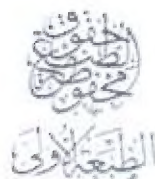 حقوق
الطبع
محفوظة
الطبعة الأولى